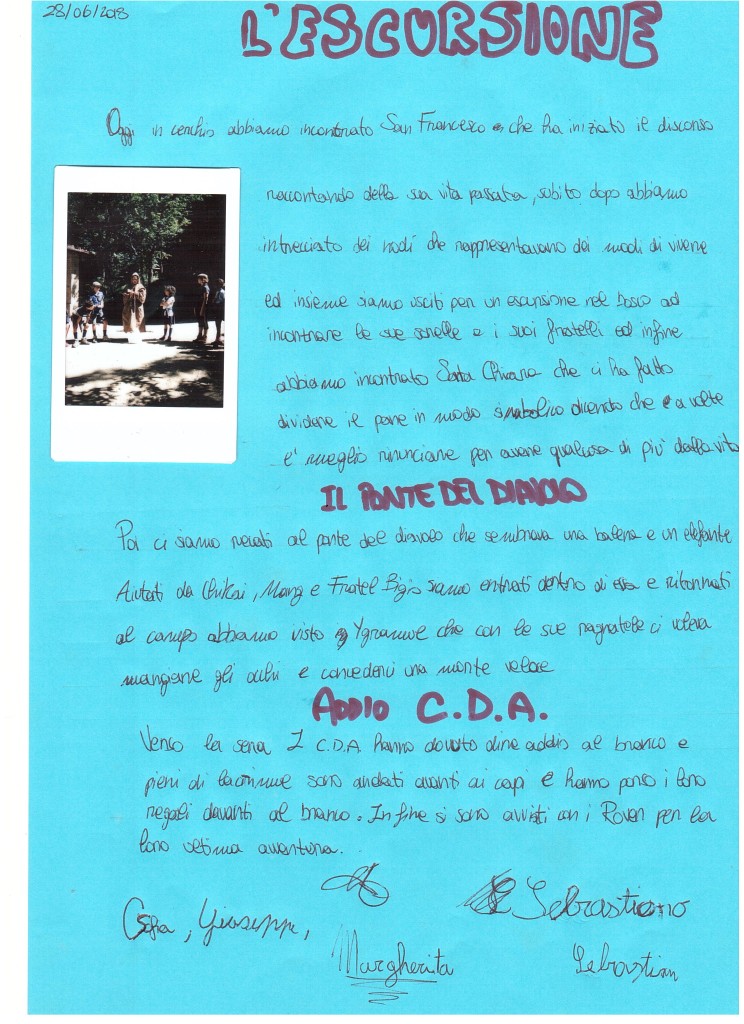 28/06/2018
L'ESCURSIONE
Oggi in cerchio abbiamo incontrato San Francesco che ha iniziato il discorso
raccontando della sua vita passata, subito dopo abbiamo
intrecciato dei nodi che rappresentavano dei modi di vivere
ed insieme siamo usciti per un escursione nel bosco ad
incontrare le sue sorelle e i suoi fratelli ed infine
abbiamo incontrato Santa Chiara che ci ha fatto
dividere il pane in modo simbolico dicendo che a volte
e' meglio rinunciare per avere qualcosa di piu' dalla vita
IL PONTE DEL DIAVOLO
Poi ci siamo recati al ponte del diavolo che sembrava una balena e un elefante
Aiutati da Chikai, Mang e Fratel Bigio siamo entrati dentro di essa e ritornati
al campo abbiamo visto Ygramue che con le sue ragnatele ci voleva
mangiare gli occhi e concederci una morte veloce
ADDIO C.D.A.
Verso la sera I C.D.A. hanno dovuto dire addio al branco e
pieni di lacrime sono andati avanti ai capi e hanno perso i loro
regali davanti al branco. Infine si sono avviati con i Rover per la
loro ultima avventura.
Sebastiano
Giuseppe,
Margherita
Sebastian